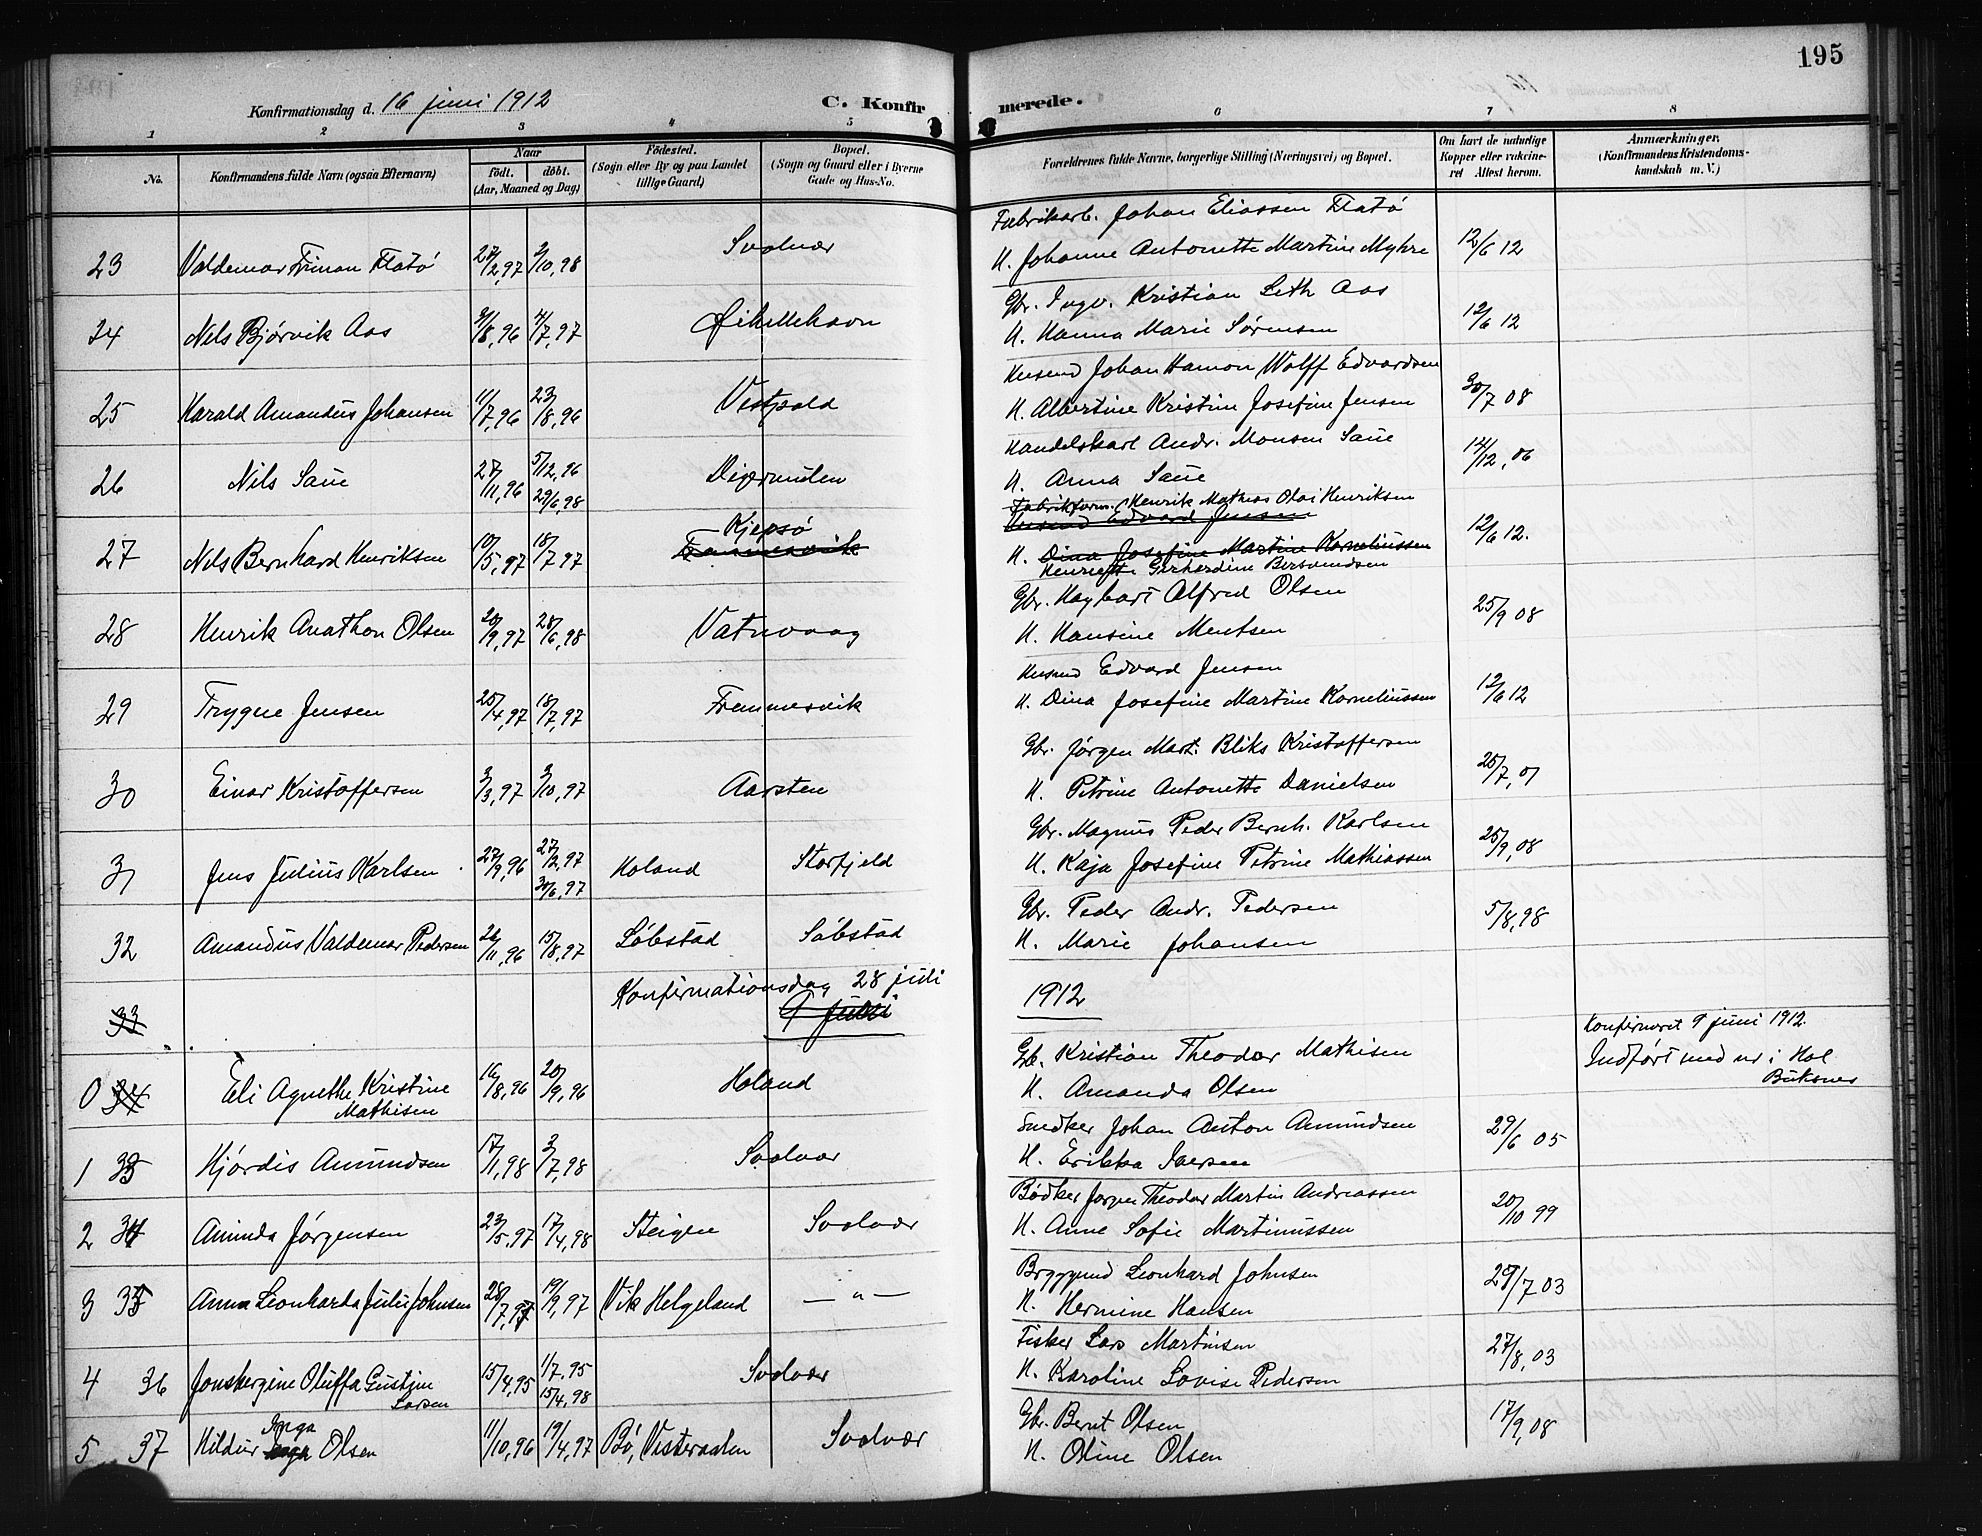 195
Konfirmationsdag d. 16 juni 1912
C. Konfirmerede.
1 2 3 4 5 6 7 8
No.
Konfirmandens fulde Navn (ogsaa Efternavn)
Naar
født. døbt.
(Aar, Maaned og Dag)
Fødested.
(Sogn eller By og paa Landet tillige Gaard)
Bopæl.
(Sogn og Gaard eller i Byerne Gade og Hus-No.
Forældrenes fulde Navne, borgerlige Stilling (Næringsvei) og Bopæl.
Om havt de naturlige Kopper eller vaccineret Attest herom.
Anmærkninger.
(Konfirmandens Kristendomskundskab m. V.)
Fabrikarb. Johan Eliassen Flatø
23 Valdemar Fflatø 27/12,97 2/10,98 Svolvær H. Johanne Antonette Martine Myhre 12/6 12
Gbr. Ingv. Kristian Leth Aas
24 Nils Bjørvik Aas 9/8,96 4/7,97 H. Hanna Marie Sørensen 12/6 12
Husmd Johan Hamon Wolff Edvardsen
25 Harald Amandus Johansen 11/7,96 23/8,96 Vestpold H. Albertine Kristine Josefine Jensen 30/7 08
Handelskarl Andr. Monsen Saue
26 Nils Saue 27/11,96 5/12,96 29/6,98 Digermulen H. Anna Saue 14/12,06
Fabrikform. Henrik Mathias Olai Henriksen
Husmd Edvard Jensen
27 Nils Bernhard Henriksen 10/5,97 18/7,97 Kjepsø H. Dina Josefine Martine Korneliussen 12/6 12.
Henriette Gerhardine Bersvendsen
Gbr. Hagbart Alfred Olsen
28 Henrik Anathon Olsen 20/9,97 28/6,98 Vatnvaag H. Hansine Mentsen 25/9 08
Husmd Edvard Jensen
29 Trygve Jensen 25/4,97 18/7,97 Fremmesvik H. Dina Josefine Martine Korneliussen 12/6 12
Gbr. Jørgen Mart. Bliks Kristoffersen
30 Einar Kristoffersen 3/3,97 3/10,97 Aarsten H. Petrine Antonette Danielsen 25/7,07
Gbr. Magnus Peder Bernh. Karlsen
31 Jens Julius Karlsen 27/9,96 27/12,97 30/6,97 Holand Storfjeld H. Kaja Josefine Petrine Mathiassen 25/9,08
Gbr. Peder Andr. Pedersen
32 Amandus Valdemar Pedersen 26/11,96 15/8,97 Løbstad Søbstad H. Marie Johansen 5/8,98
33 Konfirmationsdag 28 juli 1912
9 juni
Konfirmeret 9 juni 1912.
Gb. Kristian Theodor Mathisen Indført med nr i Hol
0 34 Eli Agnethe Kristine Mathisen 16/8,96 20/9,96 Holand H. Amanda Olsen Buksnes
Snedker Johan Anton Amundsen
1 33 Hjørdis Amundsen 17/1,98 3/7,98 Svolvær H. Erikka Iversen 29/6 05
Bødker Jørgen Theodor Martin Andreassen
2 34 Aminda Jørgensen 23/5,97 17/4,98 Steigen Svolvær H. Anne Sofie Martinussen 20/10 99
Bryggemd Leonhard Johnsen
3 35 Anna Leonharda Julie Johnsen 28/7,97 19/9,97 Vik Helgeland — " — H. Hermine Hansen 29/7 03
Fisker Lars Martinsen
4 36 Jonsbergine Oluffa Gustine Larsen 15/4,95 1/7,95 15/4,98 Svolvær H. Karoline Lovise Pedersen 27/8,03
Gbr. Bernt Olsen
5 37 Hildur Inga Olsen 11/10,96 19/4,97 Bø, Vesteraalen Svolvær H. Oline Olsen 17/9,08